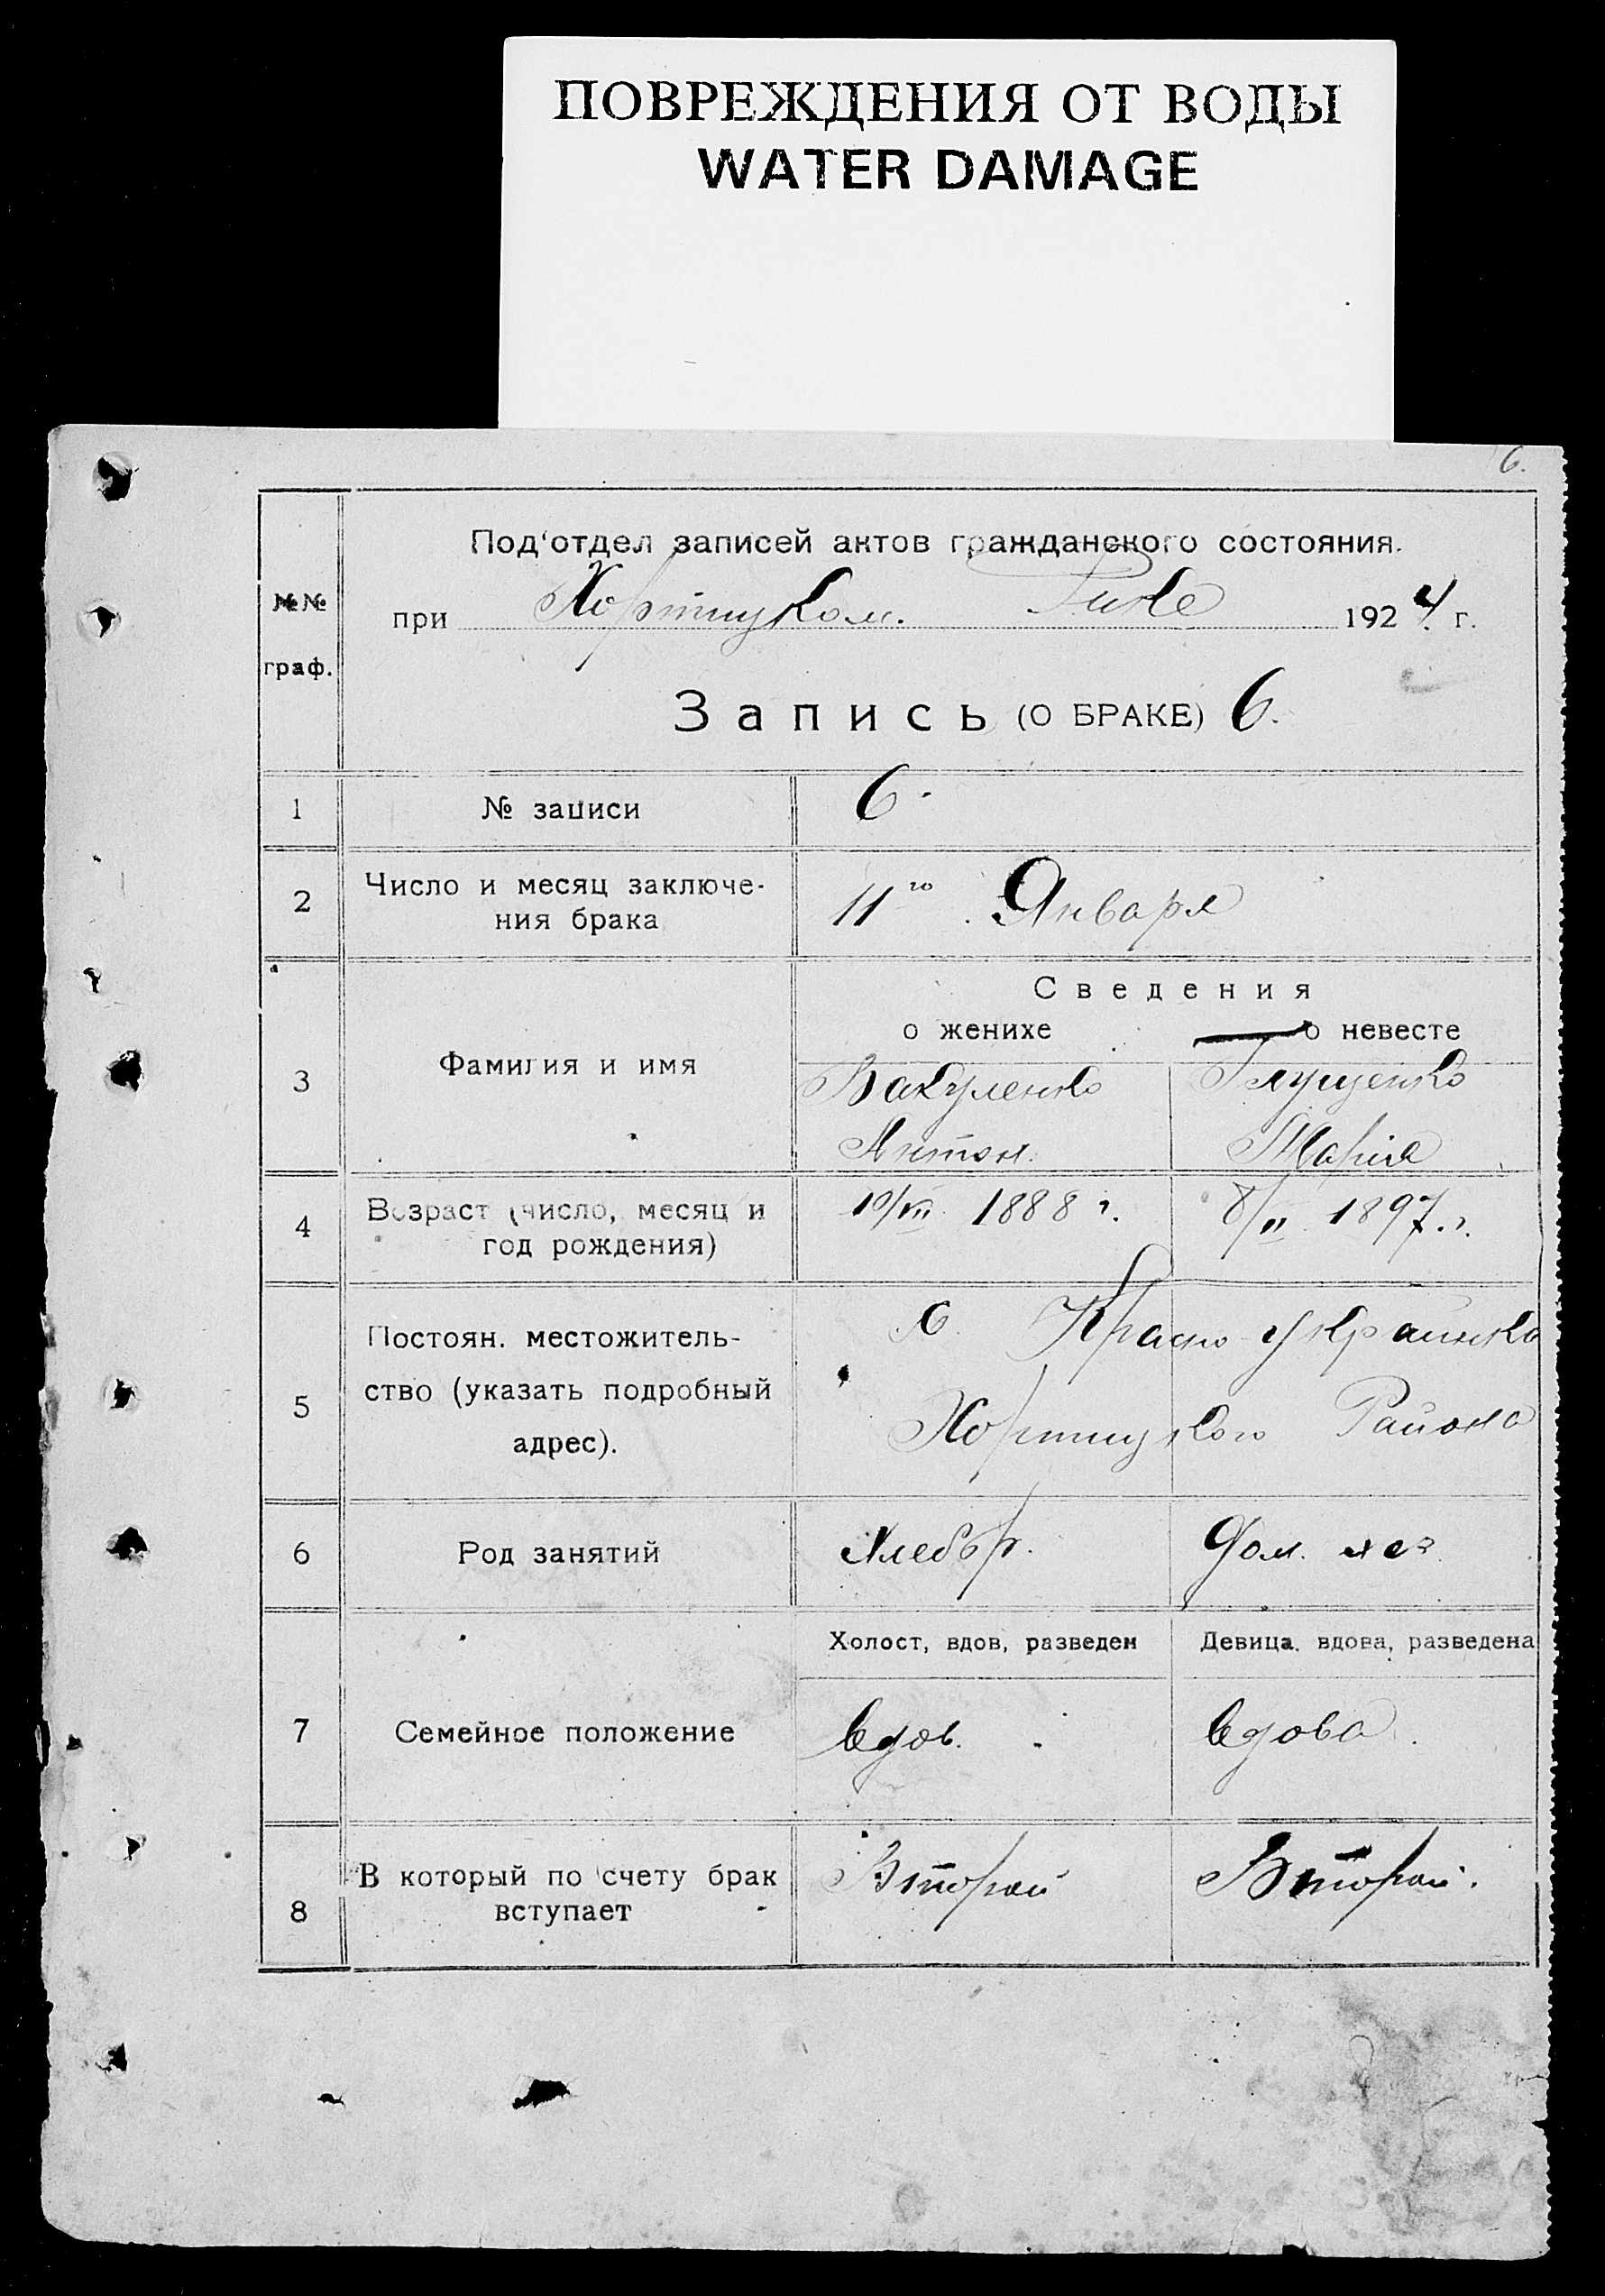 ПОВРЕЖДЕНИЯ ОТ ВОДЫ
WATER DAMAGE
6.
Под'отдел записей актов гражданского состояния.
№№ граф.
при Хортицком. Рике 1924 г.
Запись (О БРАКЕ) 6.
1 № записи 6.
2 Число и месяц заключе-
ния брака 11го Января
Сведения
о женихе о невесте
3 Фамилия и имя Вакуленко Глущенко
Антон. Марія
4 Возраст (число, месяц и
год рождения) 10/VII 1888 г. 8/II 1897 г.
5 Постоян. местожитель-
ство (указать подробный
адрес).
с. Красно-Украинка
Хортицкого Района
6 Род занятий Хлебор. Дом. хоз.
Холост, вдов, разведен Девица, вдова, разведена
7 Семейное положение вдов. вдова.
8 В который по счету брак
вступает Второй Второй.